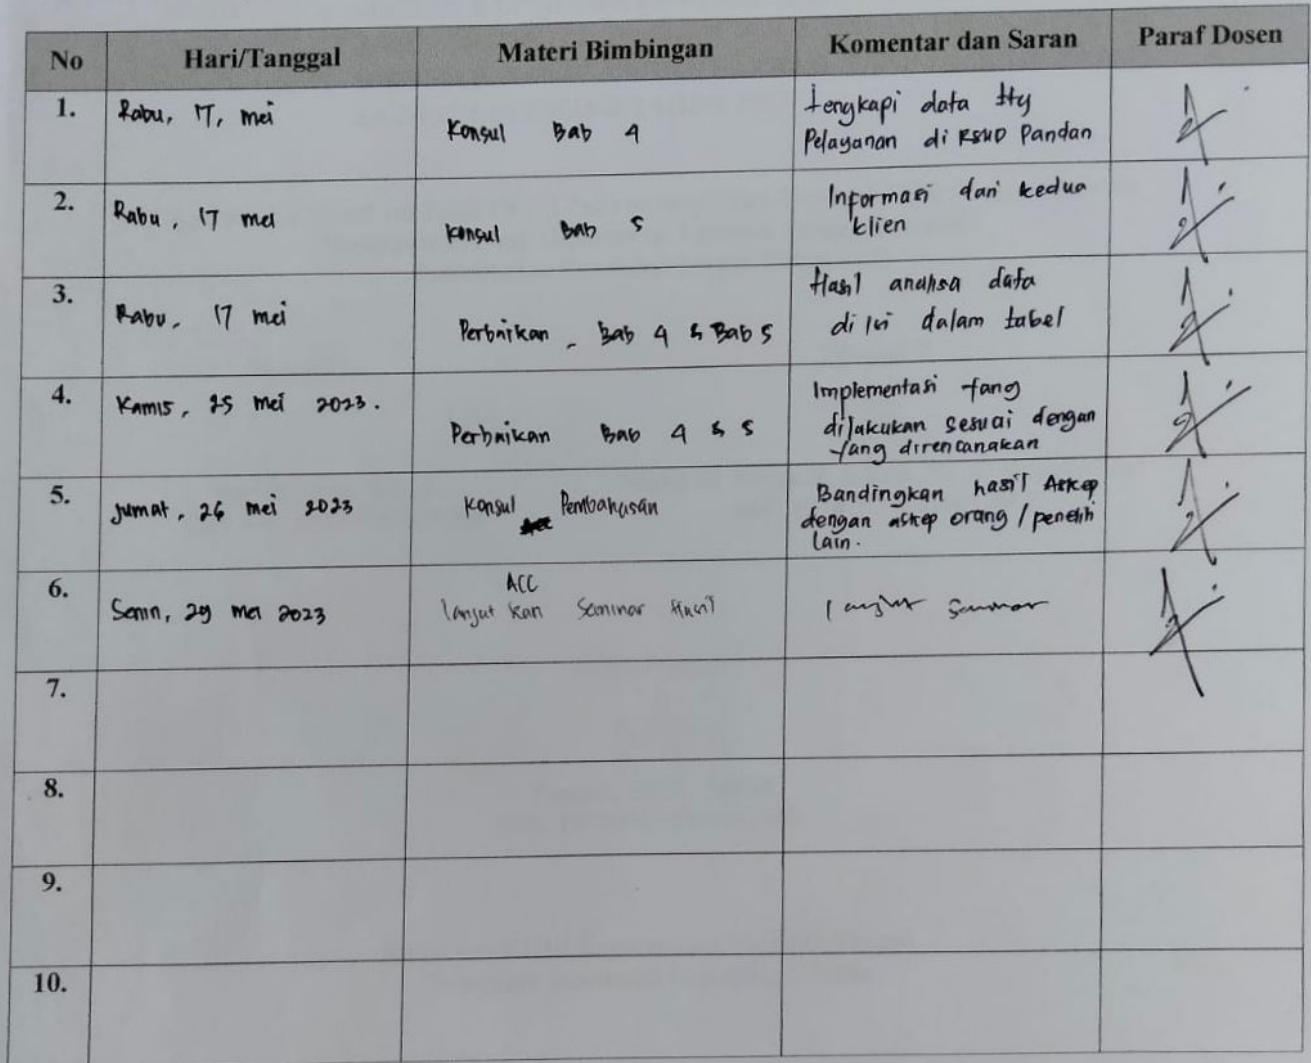 No Hari/Tanggal Materi Bimbingan Komentar dan Saran Paraf Dosen
1. Rabu, 17, mei Konsul Bab 4 Lengkapi data ttg
Pelayanan di RSUD Pandan
2. Rabu, 17 mei konsul Bab 5 Informasi dari kedua
klien
3. Rabu, 17 mei Perbaikan Bab 4 & Bab 5 Hasil analisa data
di isi dalam tabel
4. Kamis, 25 mei 2023. Perbaikan Bab 4 & 5 Implementasi yang
dilakukan sesuai dengan
yang direncanakan
5. Jumat, 26 mei 2023 Konsul Pembahasan Bandingkan hasil Askep
dengan askep orang / peneliti
lain.
6. Senin, 29 mei 2023 ACC
lanjut kan Seminar Hasil lanjut Seminar
7.
8.
9.
10.